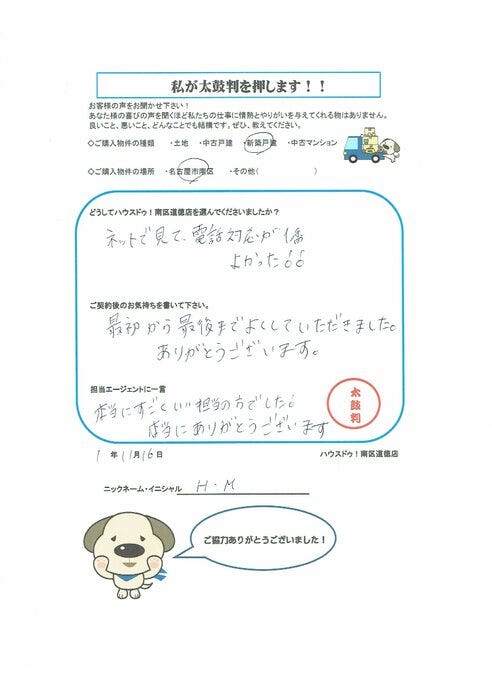 私が太鼓判を押します！！
お客様の声をお聞かせ下さい！
あなた様の喜びの声を聞くほど私たちの仕事に情熱とやりがいを与えてくれる物はありません。
良いこと、悪いこと、どんなことでも結構です。ぜひ、教えてください。
◇ご購入物件の種類 ・土地 ・中古戸建 ・新築戸建 ・中古マンション
◇ご購入物件の場所 ・名古屋市南区 ・その他( )
どうしてハウスドゥ！南区道徳店を選んでくださいましたか？
ネットで見て、電話対応が
よかった
ご契約後のお気持ちを書いて下さい。
最初から最後までよくしていただきました。
ありがとうございます。
担当エージェントに一言
本当にすごくいい担当の方でした!
本当にありがとうございます
太鼓判
1年11月16日
ハウスドゥ！南区道徳店
ニックネーム・イニシャル H・M
ご協力ありがとうございました！